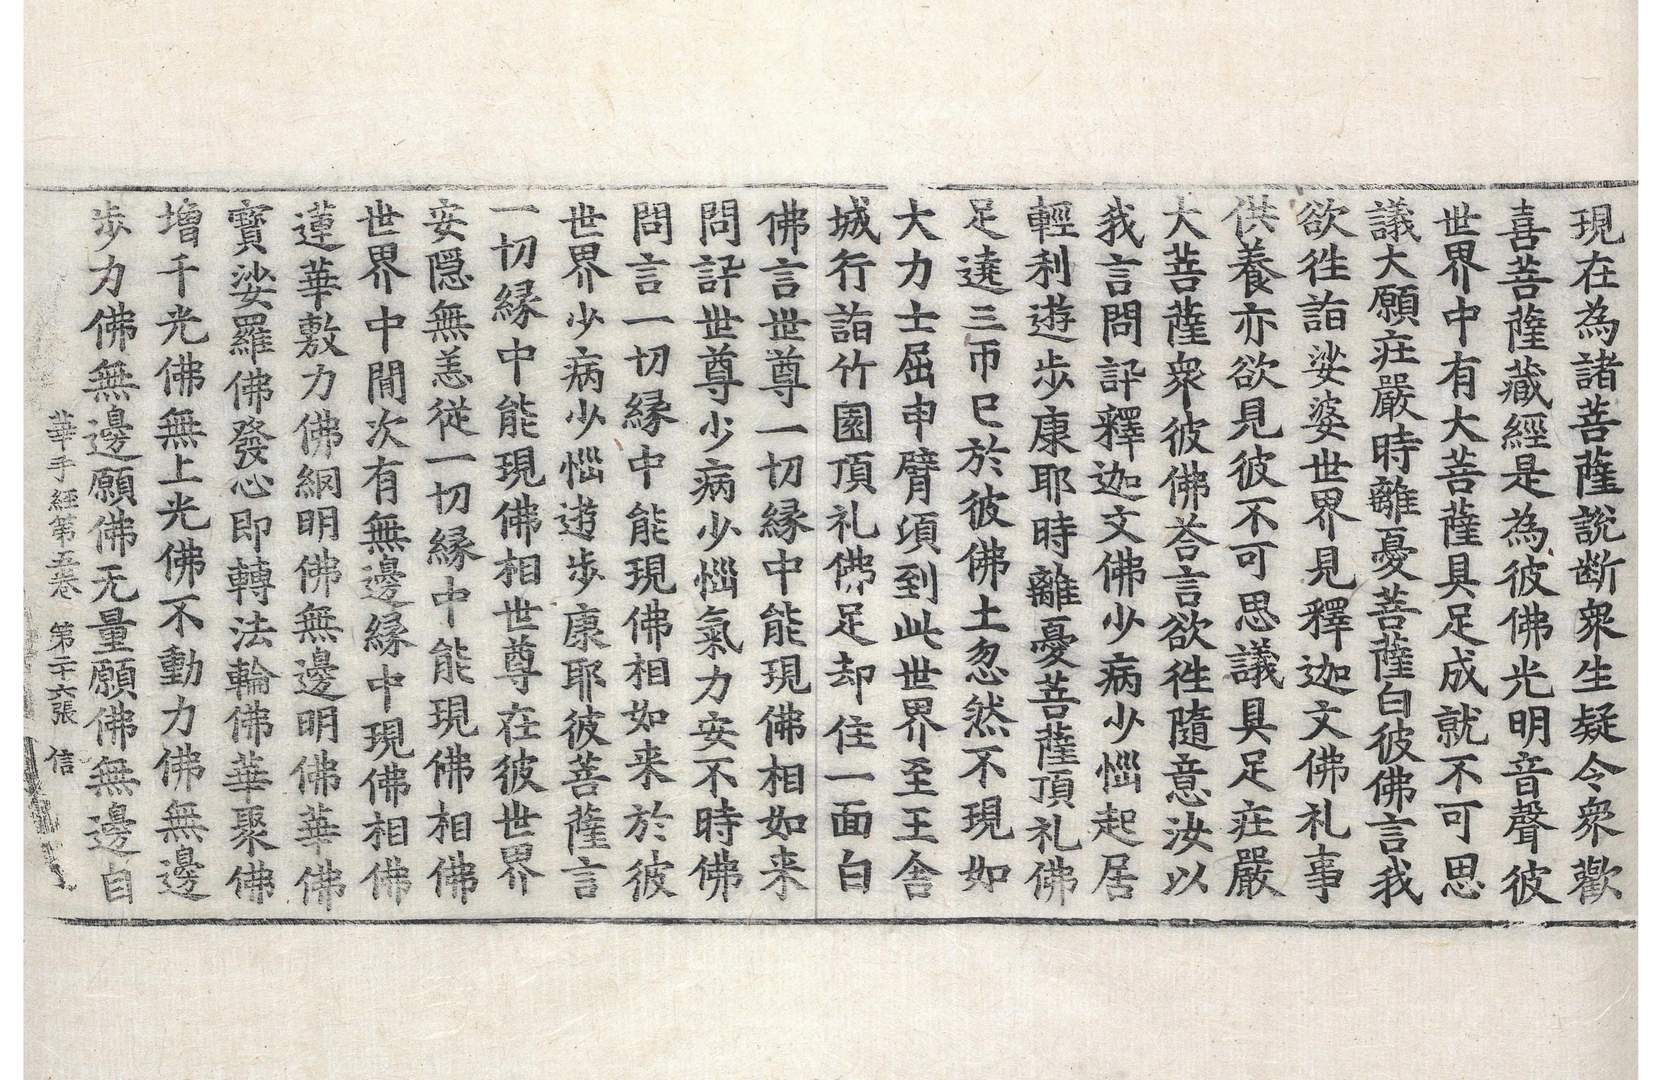 現在為諸菩薩說断衆生疑令衆歡
喜菩薩藏經是為彼佛光明音聲彼
世界中有大菩薩具足成就不可思
議大願莊嚴時離憂菩薩白彼佛言我
欲徃詣娑婆世界見釋迦文佛礼事
供養亦欲見彼不可思議具足莊嚴
大菩薩衆彼佛荅言欲徃隨意汝以
我言問訊釋迦文佛少病少惱起居
輕利遊步康耶時離憂菩薩頂礼佛
足遶三帀已於彼佛土忽然不現如
大力士屈申臂頃到此世界至王舍
城行詣竹園頂礼佛足却住一面白
佛言世尊一切緣中能現佛相如来
問訊世尊少病少惱氣力安不時佛
問言一切緣中能現佛相如来於彼
世界少病少惱遊步康耶彼菩薩言
一切緣中能現佛相世尊在彼世界
安隱無恙從一切緣中能現佛相佛
世界中間次有無邊緣中現佛相佛
蓮華敷力佛網明佛無邊明佛華佛
寶娑羅佛發心即轉法輪佛華聚佛
增千光佛無上光佛不動力佛無邊
步力佛無邊願佛无量願佛無邊自
華手經第五卷 第二十六張 信